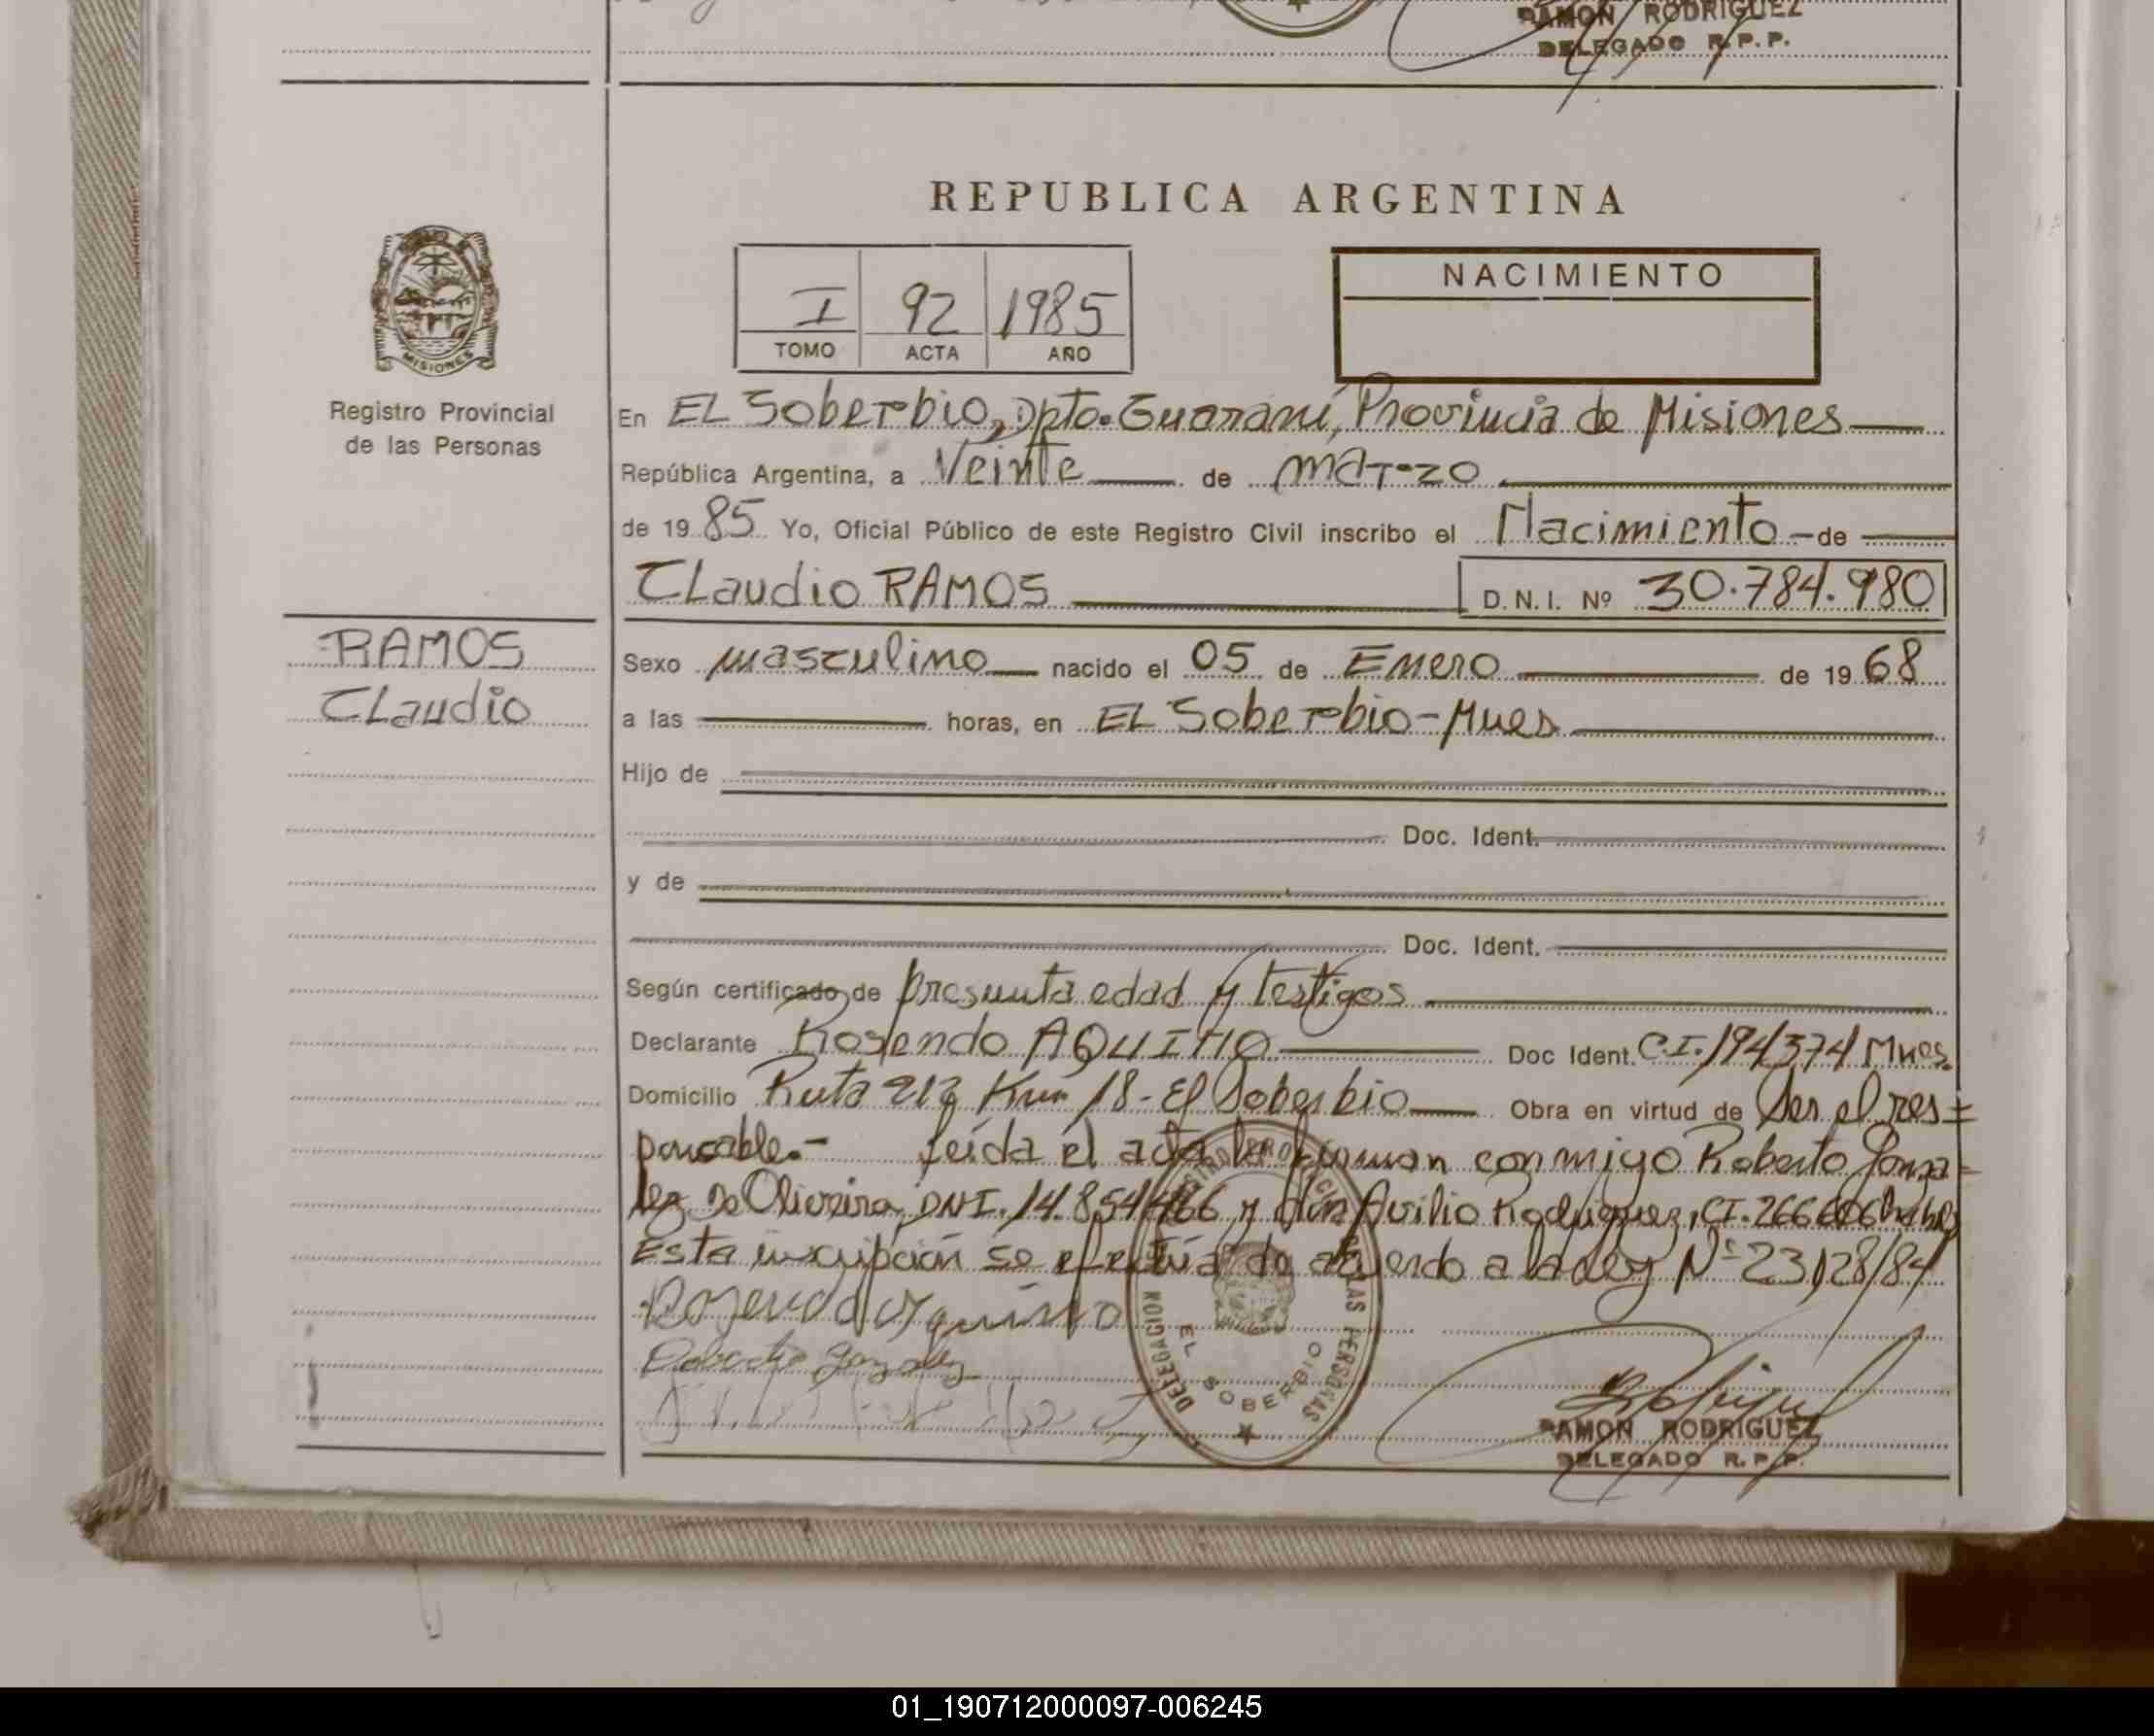 RAMON RODRIGUEZ
DELEGADO R.P.P.
REPUBLICA ARGENTINA
I 92 1985
TOMO ACTA AÑO
NACIMIENTO
MISIONES
Registro Provincial
de las Personas
RAMOS
Claudio
En EL Soberbio, Dpto. Guaraní, Provincia de Misiones
República Argentina, a Veinte de marzo
de 1985 Yo, Oficial Público de este Registro Civil inscribo el Nacimiento - de
Claudio RAMOS D.N.I. Nº 30.784.980
Sexo masculino nacido el 05 de Enero de 1968
a las horas, en EL Soberbio - Mnes
Hijo de
Doc. Ident.
y de
Doc. Ident.
Según certificado de presunta edad y testigos
Declarante Rosendo AQUINO Doc Ident. C.I. 194374 Mnes.
Domicilio Ruta 212 Km 18 - El Soberbio Obra en virtud de Ser el res=
ponsable.- Leída el acta la firman conmigo Roberto Gonza=
lez De Oliveira, DNI. 14.854466 y don Avilio Rodriguez, CI. 266606
Esta inscripción se efectúa de acuerdo a la ley Nº 23128/84
Rosendo Aquino
Roberto Gonzalez
DELEGACION EL SOBERBIO
LAS PERSONAS
RAMON RODRIGUEZ
DELEGADO R.P.P.
01_190712000097-006245